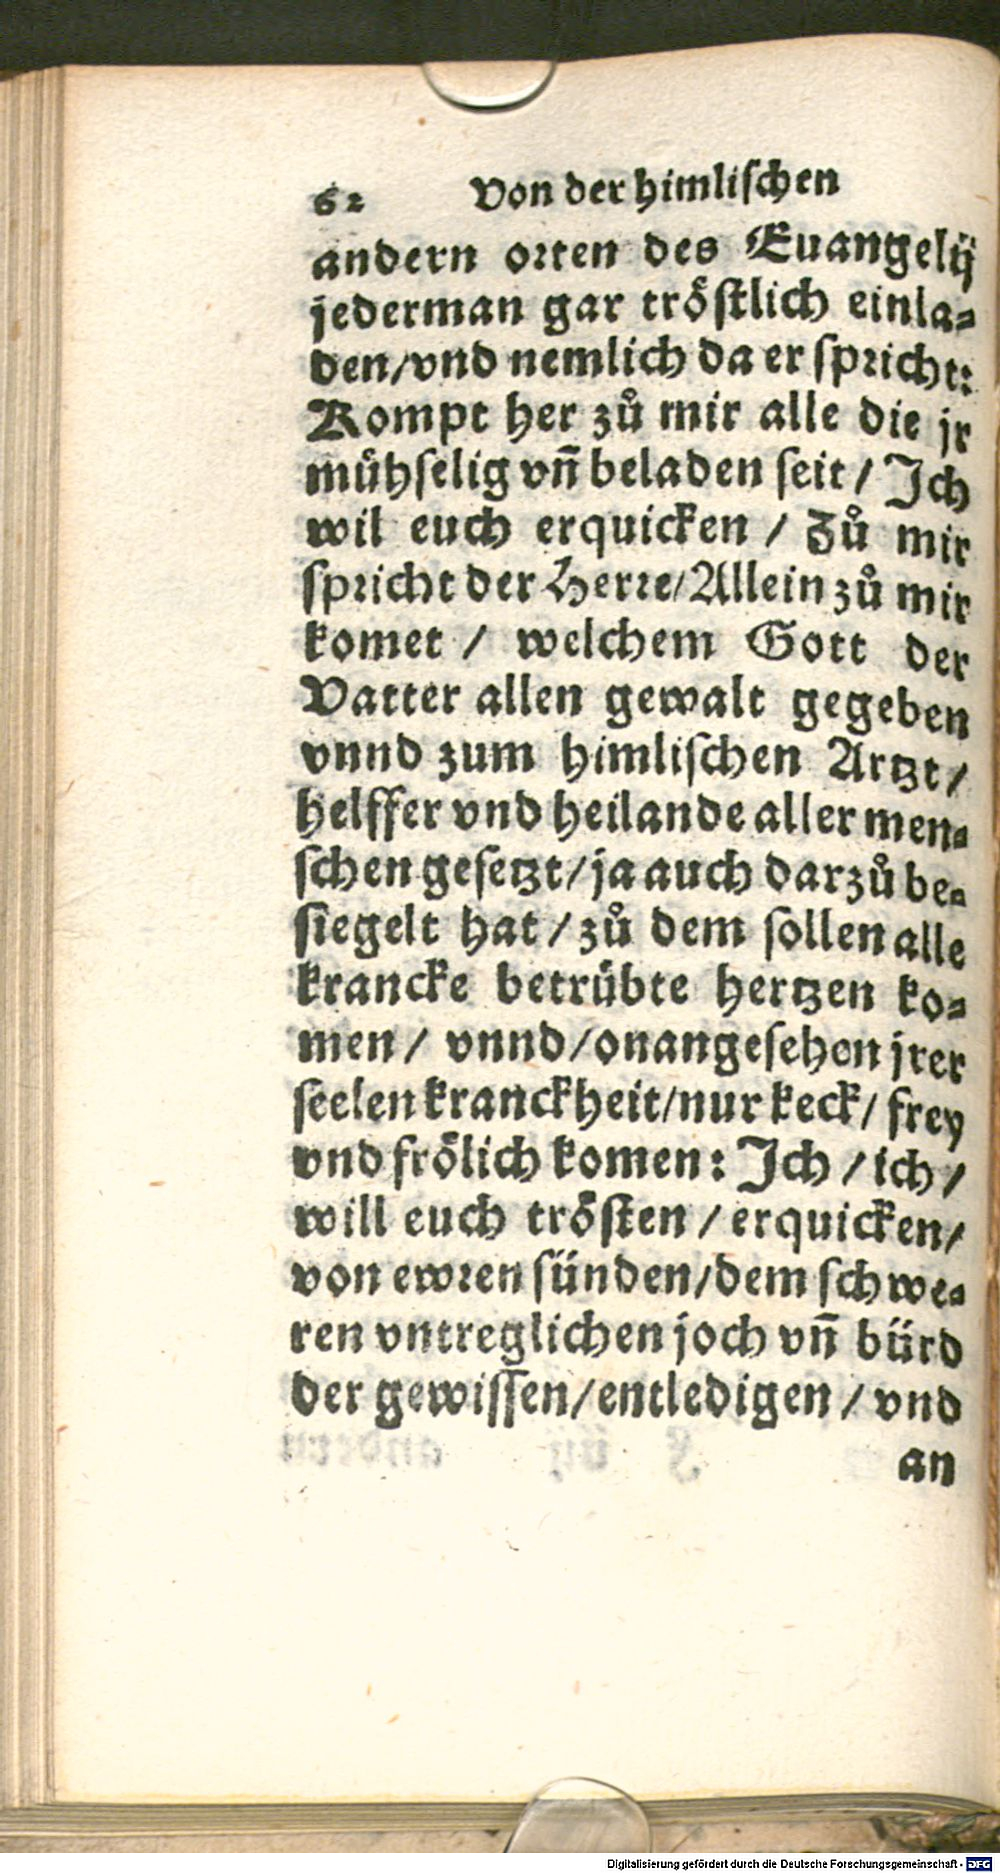 62 Von der himlischen
andern orten des Euangelij
jederman gar tröstlich einla-
den/vnd nemlich da er spricht:
Kompt her zů mir alle die jr
mühselig vñ beladen seit/ Ich
wil euch erquicken / Zů mir
spricht der Herre/Allein zů mir
komet / welchem Gott der
Vatter allen gewalt gegeben
vnnd zum himlischen Artzt/
helffer vnd heilande aller men-
schen gesetzt/ja auch darzů be-
siegelt hat/zů dem sollen alle
krancke betrübte hertzen ko-
men/ vnnd/onangesehen jrer
seelen kranckheit/nur keck/ frey
vnd frölich komen: Ich /ich/
will euch trösten / erquicken/
von ewren sünden/dem schwe-
ren vntreglichen joch vñ bürd
der gewissen/entledigen / vnd
an
Digitalisierung gefördert durch die Deutsche Forschungsgemeinschaft - DFG